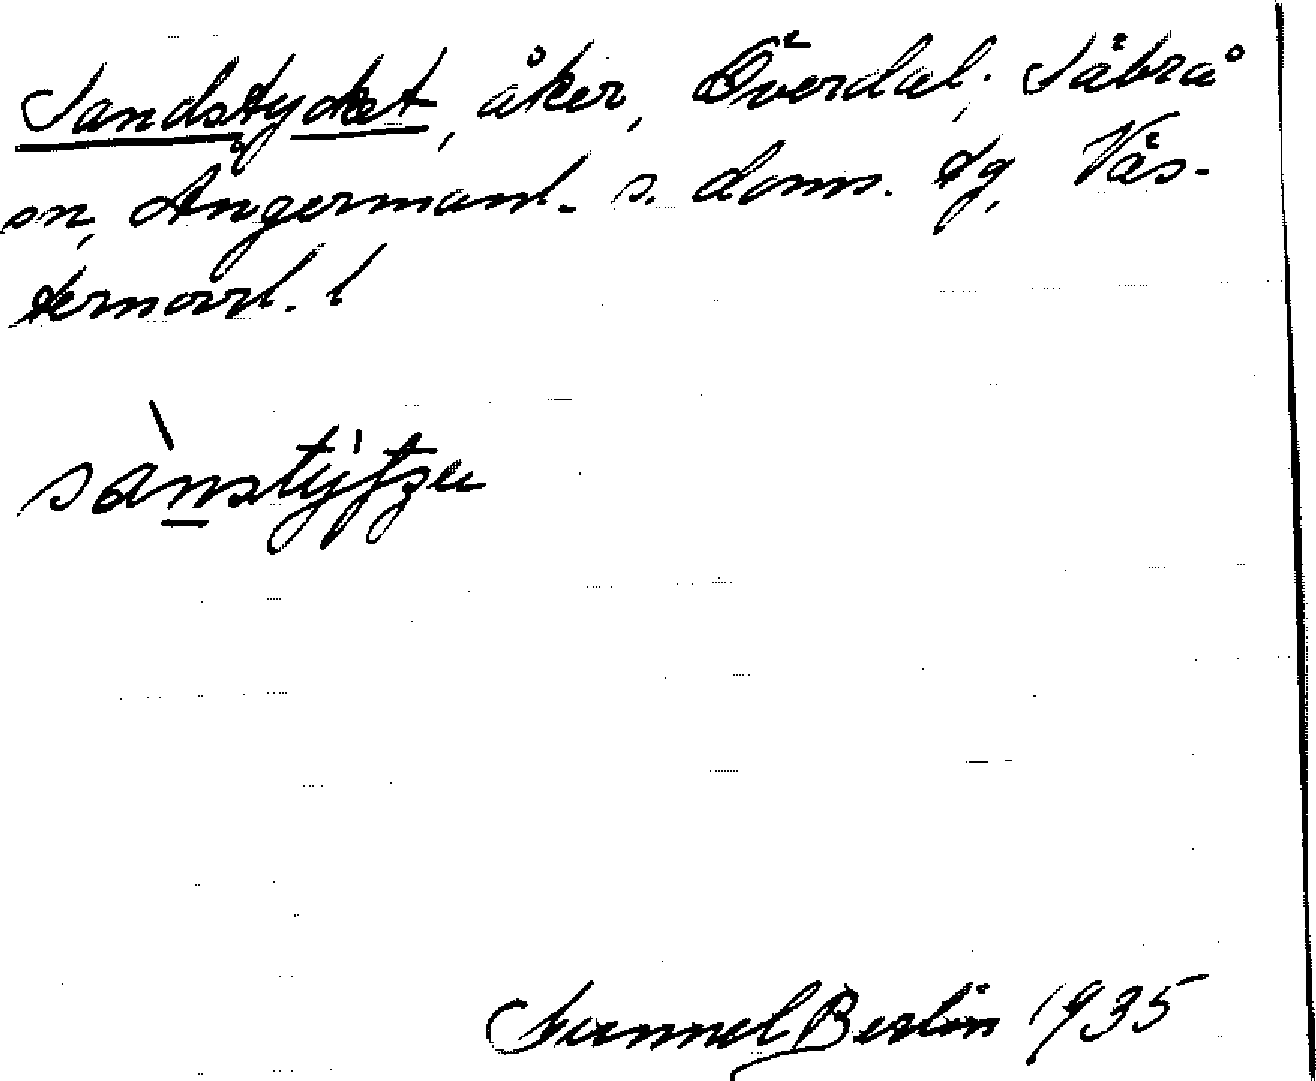 Sandstycket, åker, Överdal, Säbrå
sn, Ångermanl. s. doms. tg, Väs-
ternorrl. l
sànstýtʒu
Gunnel Berlin 1935